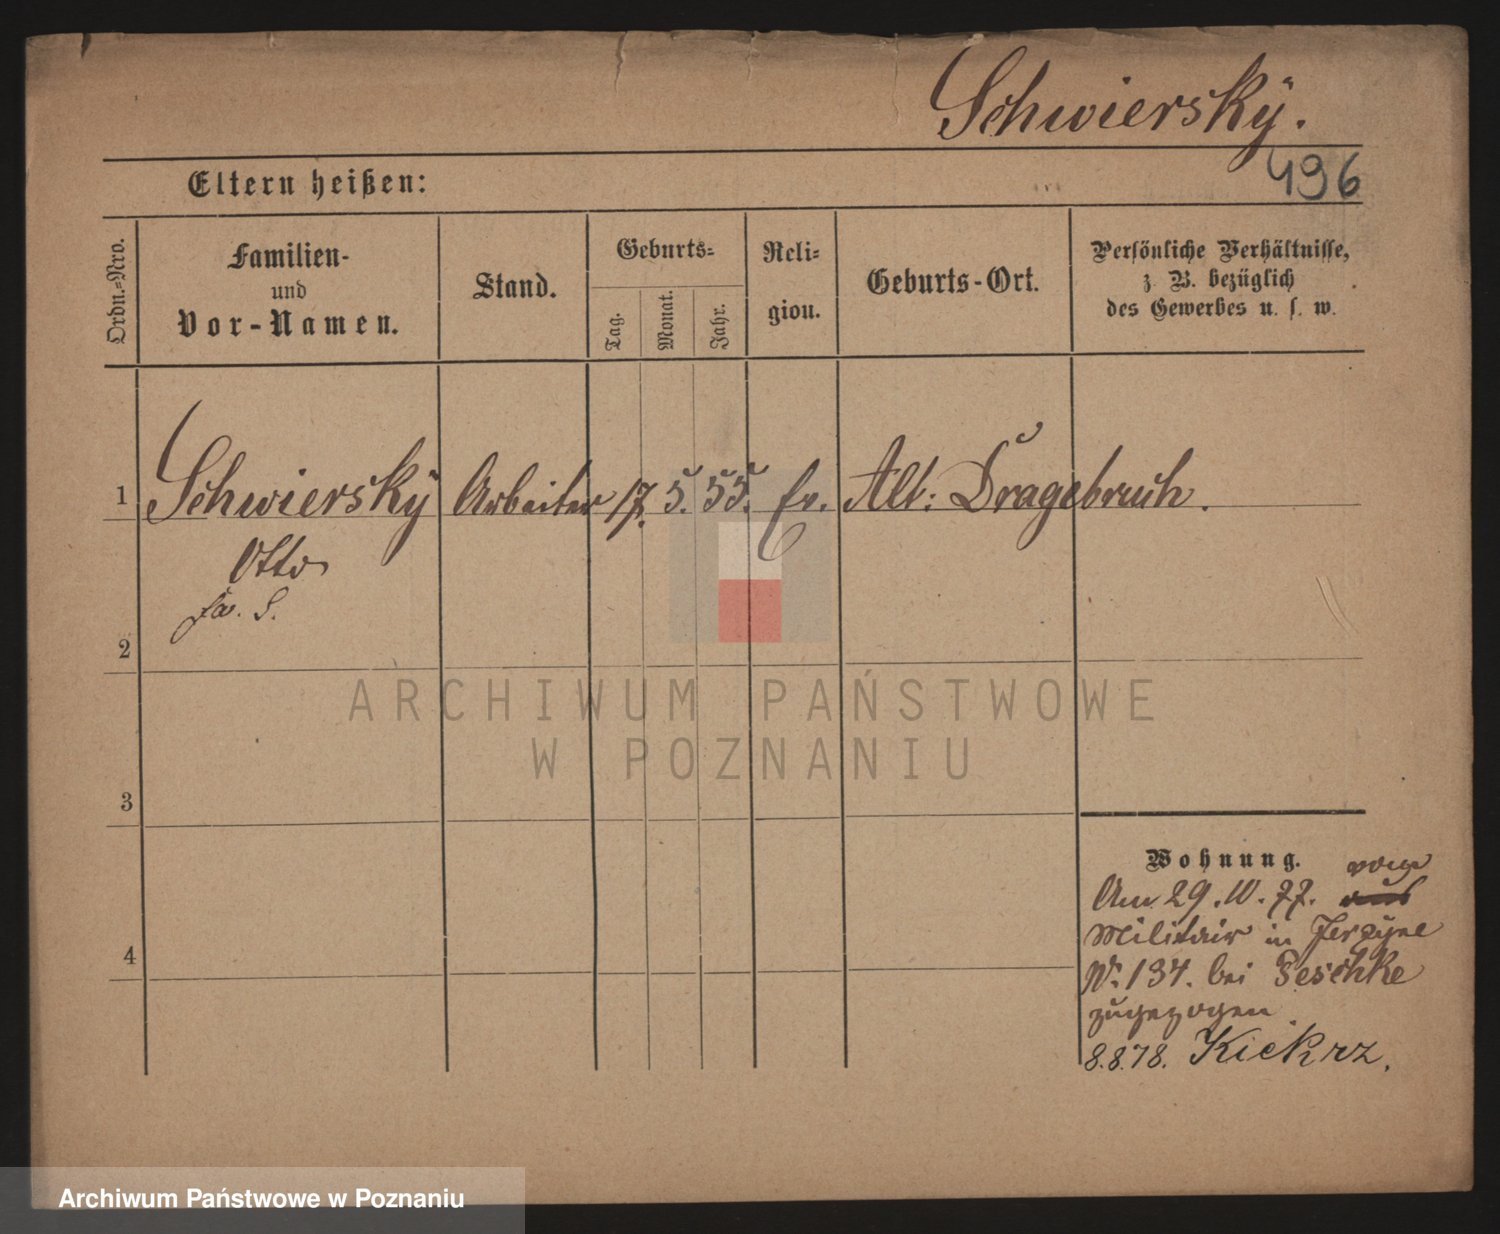 Schwierskÿ.
496
Eltern heißen:
Ordn.=Nro.
Familien-
und
Vor-Namen.
Stand.
Geburts=
Tag.
Monat.
Jahr.
Reli=
gion.
Geburts-Ort.
Persönliche Verhältnisse,
z. B. bezüglich
des Gewerbes u. s. w.
1 Schwierskÿ Arbeiter 17. 5. 55. ev. Alt: Dragebruch.
Otto
S.
2
3
4
ARCHIWUM PAŃSTWOWE
W POZNANIU
Wohnung.
Am 29. 10. 77.
Militair in Jerzÿce
No. 134. bei Peschke
zugezogen.
8.8.78. Kiekrz.
Archiwum Państwowe w Poznaniu